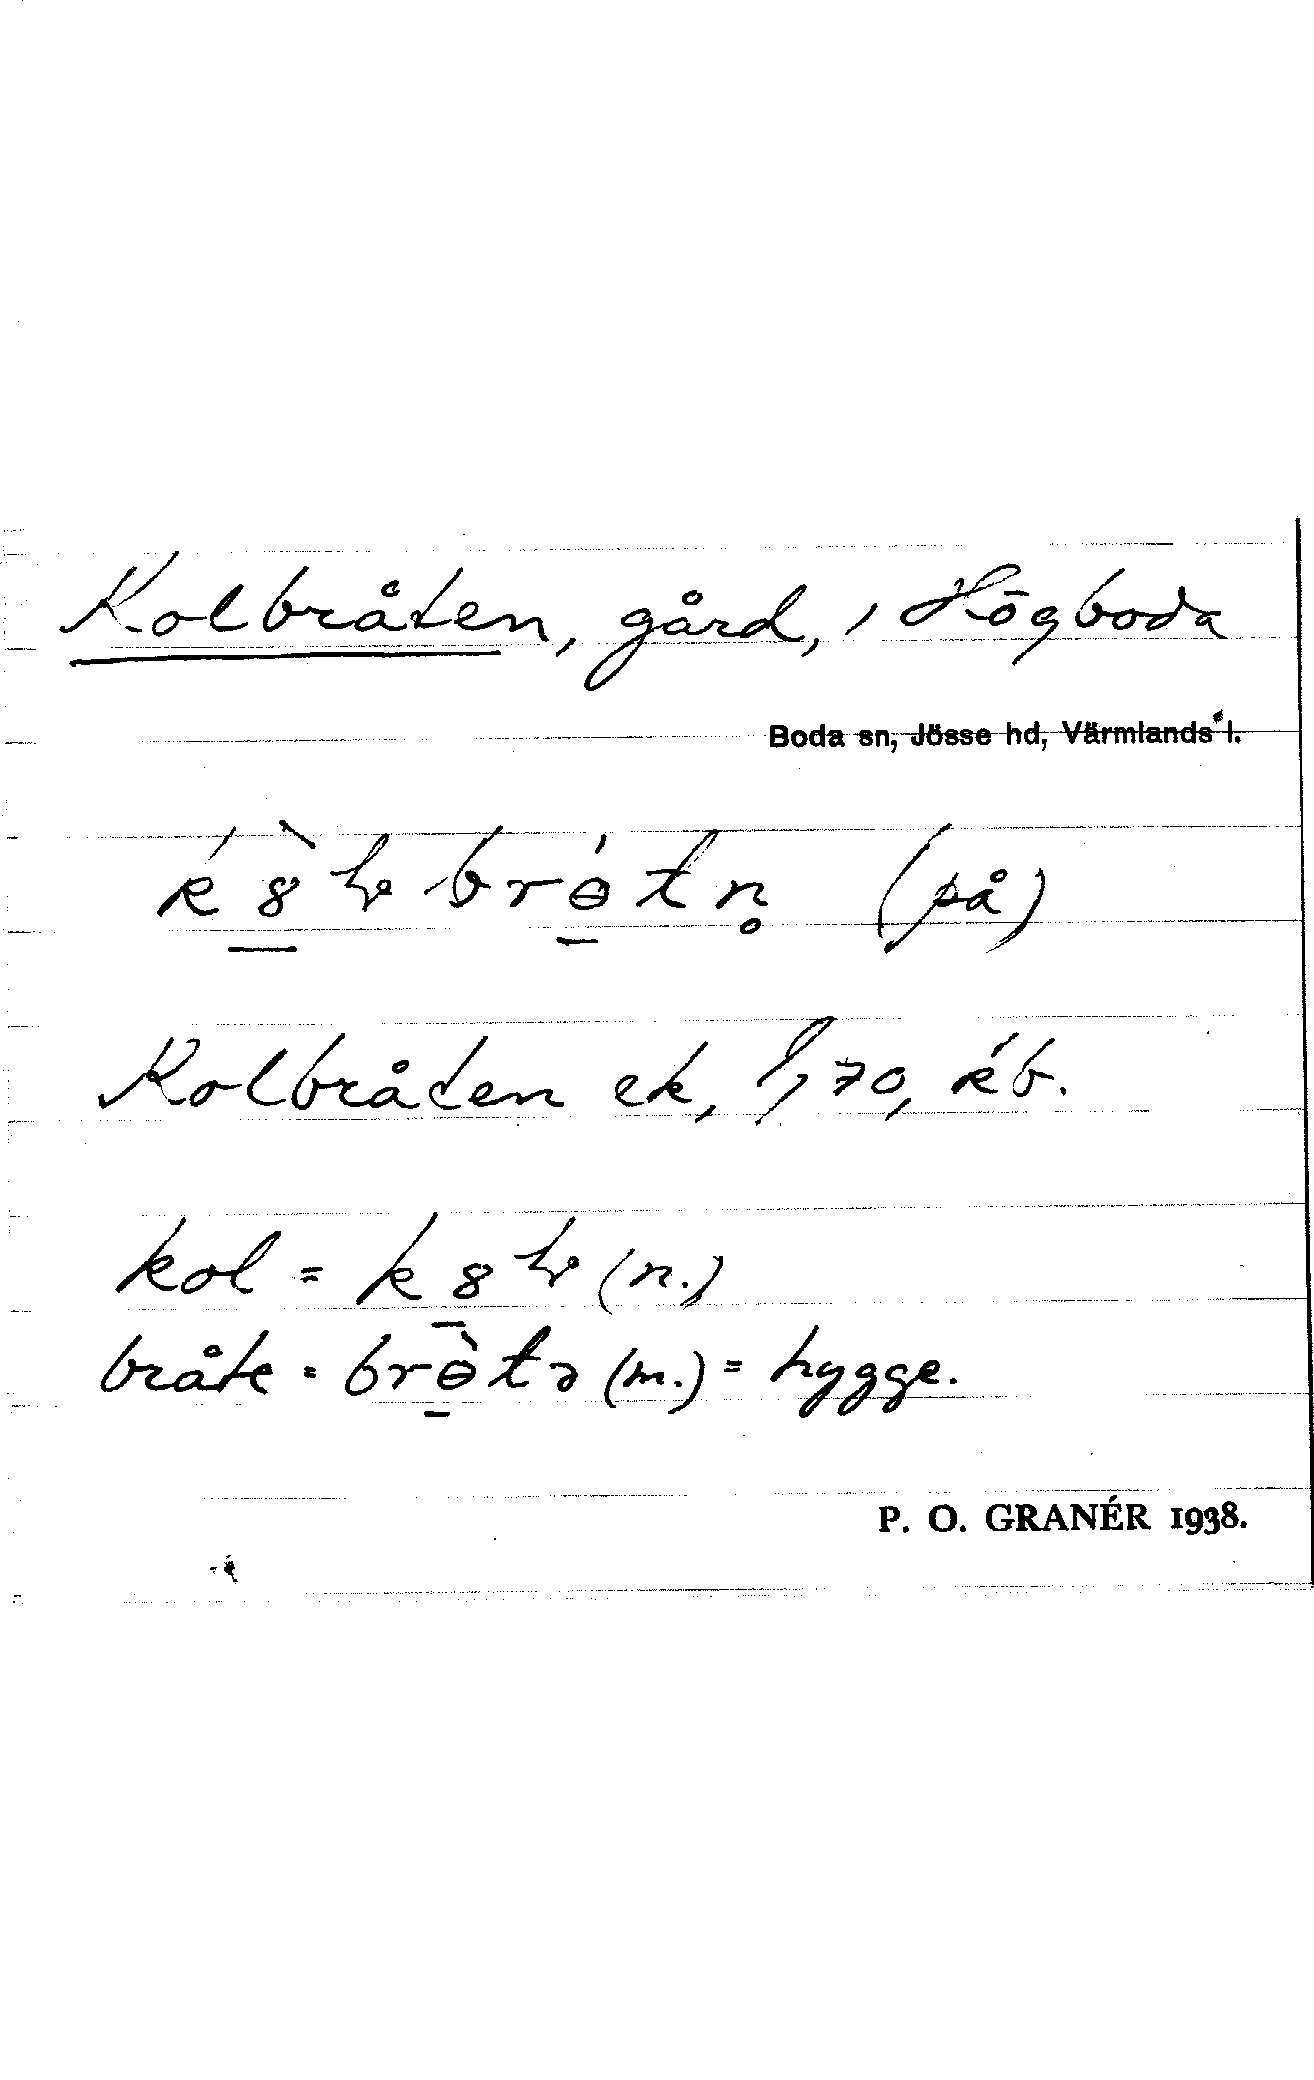 Kolbråten, gård, i Högboda
Boda sn, Jösse hd, Värmlands l.
k 8̱̀ ɫ b r ɵ̱́ t n̥ (på)
Kolbråten ek, 1,70, kb.
kol = k 8̱ ɫ (n.)
bråte = br ɵ̱̀ t ə (m.) = hygge.
P. O. GRANÉR 1938.